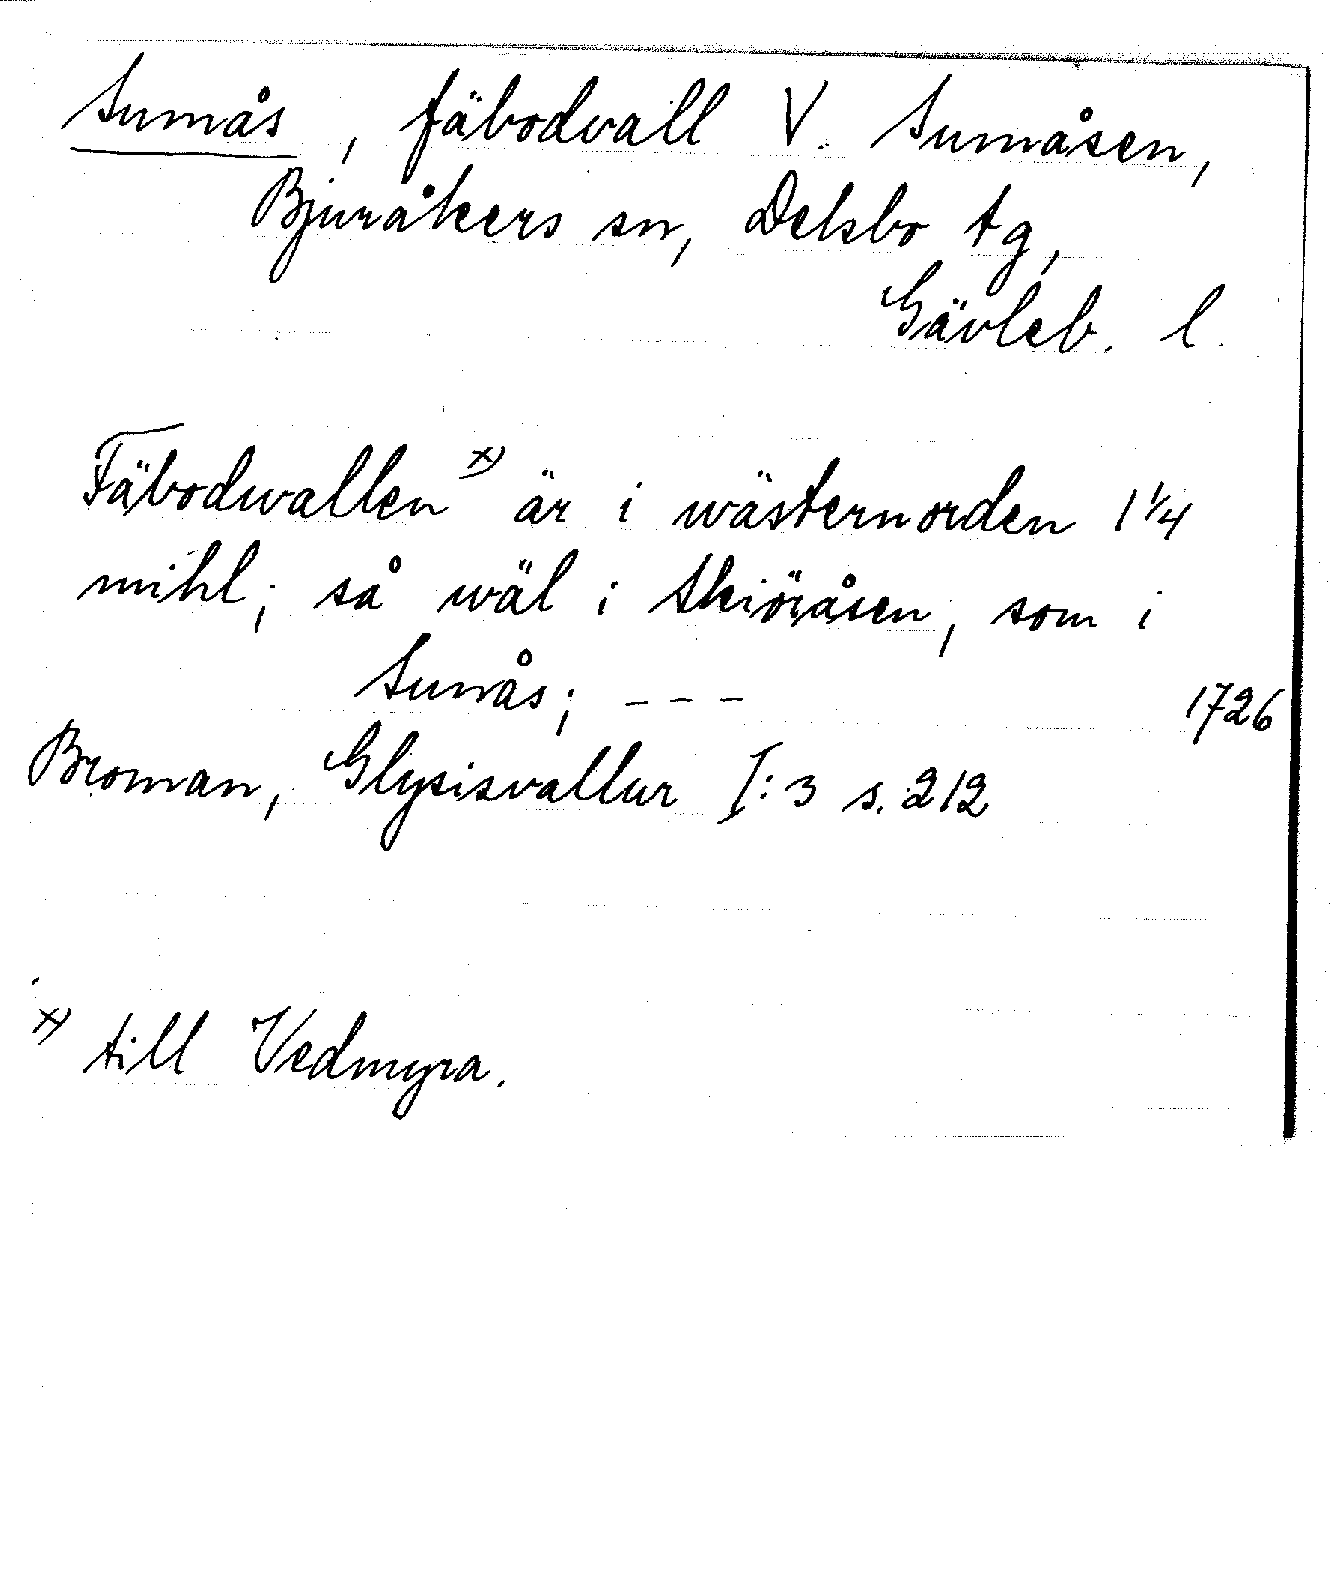 Sumås, fäbodvall V. Sumåsen,
Bjuråkers sn, Delsbo tg,
Gävleb. l.
Fäbodwallen x) är i wästernorden 1 1/4
mihl; så wäl i Skiöråsen, som i
Sumås; - - -
1726
Broman, Glysisvallur I:3 s. 212
x) till Vedmyra.